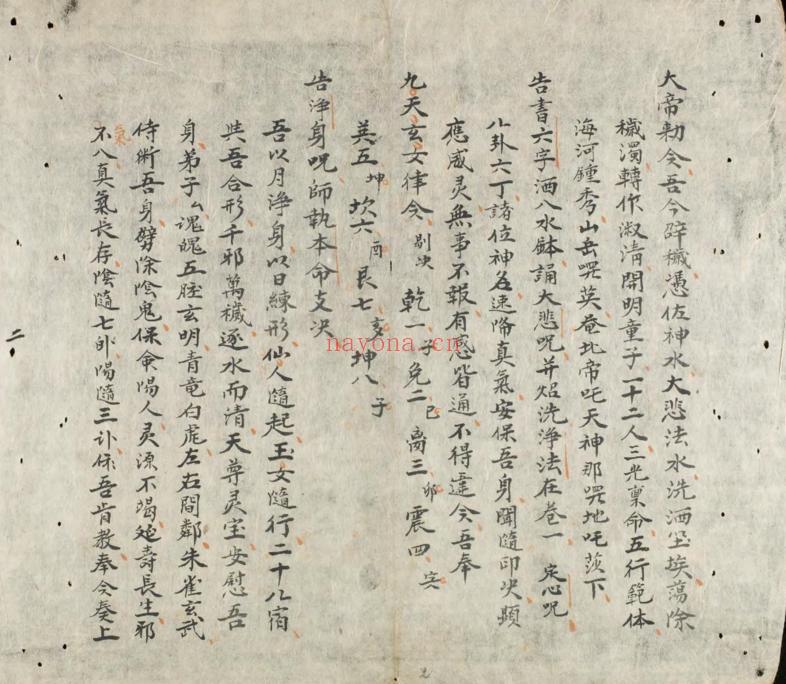 大帝勅令吾今辟穢憑佐神水大悲法水洗洒尘埃蕩除
穢濁轉作淑清開明童子一十二人三光稟命五行範体
海河鍾秀山岳哭英奄北帝吒天神那哭地吒莎下
告書六字洒入水鉢誦大悲咒并炤洗浄法在卷一 定心咒
八卦六丁諸位神各速降真氣安保吾身聞隨印决顯
應感灵無事不報有感皆通不得違令吾奉
九天玄女律令 乾一 子 兌二 巳 离三 卯 震四
巽五 坤 坎六 酉 艮七 亥 坤八 子
告浄身咒師執本命支决
吾以月浄身以日練形仙人隨起玉女隨行二十八宿
共吾合形千邪萬穢逐水而清天尊灵宝安慰吾
身弟子厶魂魄五脏玄明青竜白虎左右間鄰朱雀玄武
侍衛吾身劈除陰鬼保命陽人灵源不竭延壽長生邪
氣
不入真氣長存陰隨七 陽隨三 依吾肯教奉令奏上
二
2
nayona.cn